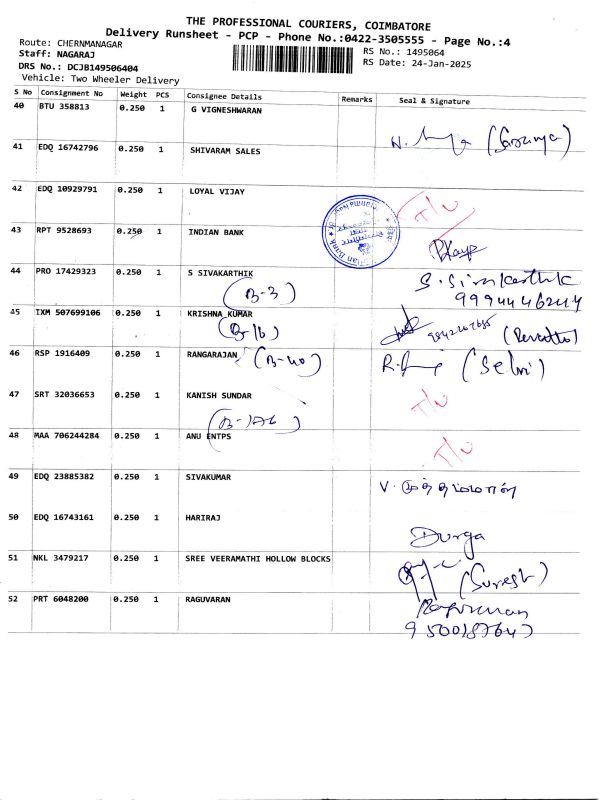 THE PROFESSIONAL COURIERS, COIMBATORE
Delivery Runsheet - PCP - Phone No.:0422-3505555 - Page No.:4
Route: CHERNMANAGAR
Staff: NAGARAJ
DRS No.: DCJB149506404
Vehicle: Two Wheeler Delivery
RS No.: 1495064
RS Date: 24-Jan-2025
S No Consignment No Weight PCS Consignee Details Remarks Seal & Signature
40 BTU 358813 0.250 1 G VIGNESHWARAN
(Saranya)
41 EDQ 16742796 0.250 1 SHIVARAM SALES
42 EDQ 10929791 0.250 1 LOYAL VIJAY T/U
43 RPT 9528693 0.250 1 INDIAN BANK
44 PRO 17429323 0.250 1 S SIVAKARTHIK S.Sivakarthik
(B-3) 9994446244
45 IXM 507699106 0.250 1 KRISHNA KUMAR
(B-16)
46 RSP 1916409 0.250 1 RANGARAJAN (B-40) (Selvi)
47 SRT 32036653 0.250 1 KANISH SUNDAR T/U
(B-176)
48 MAA 706244284 0.250 1 ANU ENTPS T/U
49 EDQ 23885382 0.250 1 SIVAKUMAR
50 EDQ 16743161 0.250 1 HARIRAJ
Durga
51 NKL 3479217 0.250 1 SREE VEERAMATHI HOLLOW BLOCKS
(Suresh)
52 PRT 6048200 0.250 1 RAGUVARAN
9500187647